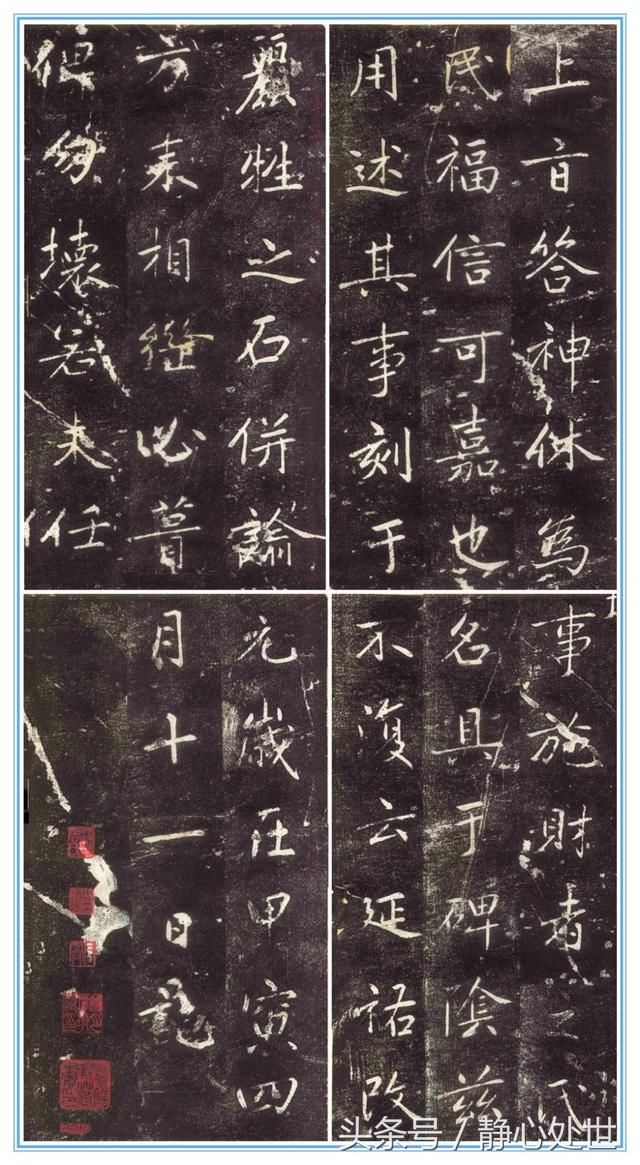 上旨答神休為
民福信可嘉也
用述其事刻于
麗牲之石併諭
方来相繼必葺
俾勿壞若夫任
事施財者之氏
名具于碑陰兹
不復云延祐改
元歲在甲寅四
月十一日記
头条号 / 静心处世